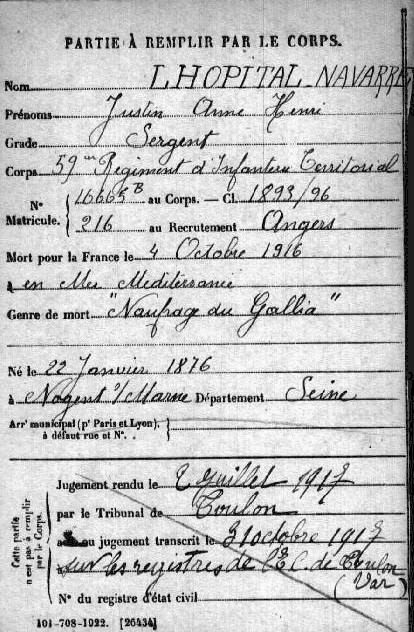 PARTIE À REMPLIR PAR LE CORPS.
Nom LHOPITAL NAVARRE
Prénoms Justin Anne Henri
Grade Sergent
Corps 59me Régiment d'Infanterie Territorial
N° 16665B au Corps. — Cl. 1893/96
Matricule. 216 au Recrutement Angers
Mort pour la France le 4 Octobre 1916
à en Mer Mediterranée
Genre de mort "Naufrage du Gallia"
Né le 22 Janvier 1876
à Nogent s/Marne Département Seine
Arrt municipal (pr Paris et Lyon),
à défaut rue et N°.
Cette partie n'est pas à remplir par le Corps.
Jugement rendu le 2 Juillet 1917
par le Tribunal de Toulon
ou jugement transcrit le 31 octobre 1917
à sur les registres de l'E.C. de Toulon
(Var)
N° du registre d'état civil
101-708-1922. [26434]